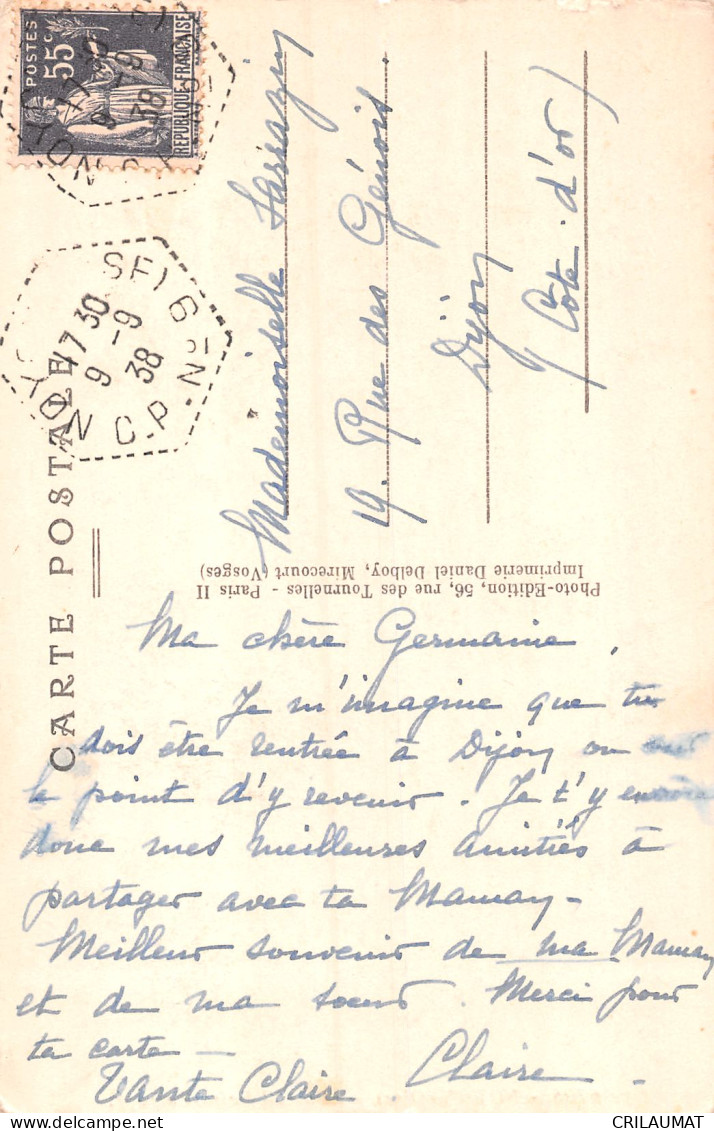 POSTES
55c
REPUBLIQUE FRANÇAISE
17 30
9 -9
38
YON C.P. Nº
CARTE POSTALE
Mademoiselle
19. Rue des Génois.
Dijon
(Côte. d'or)
Photo-Edition, 56, rue des Tournelles - Paris II
Imprimerie Daniel Delboy, Mirecourt (Vosges)
Ma chère Germaine,
Je m'imagine que tu
dois être rentrée à Dijon ou sur
le point d'y revenir. Je t'y envoie
donc mes meilleures amitiés à
partager avec ta Maman -
Meilleur souvenir de ma Maman
et de ma soeur. Merci pour
ta carte -
Tante Claire. Claire.
CRILAUMAT